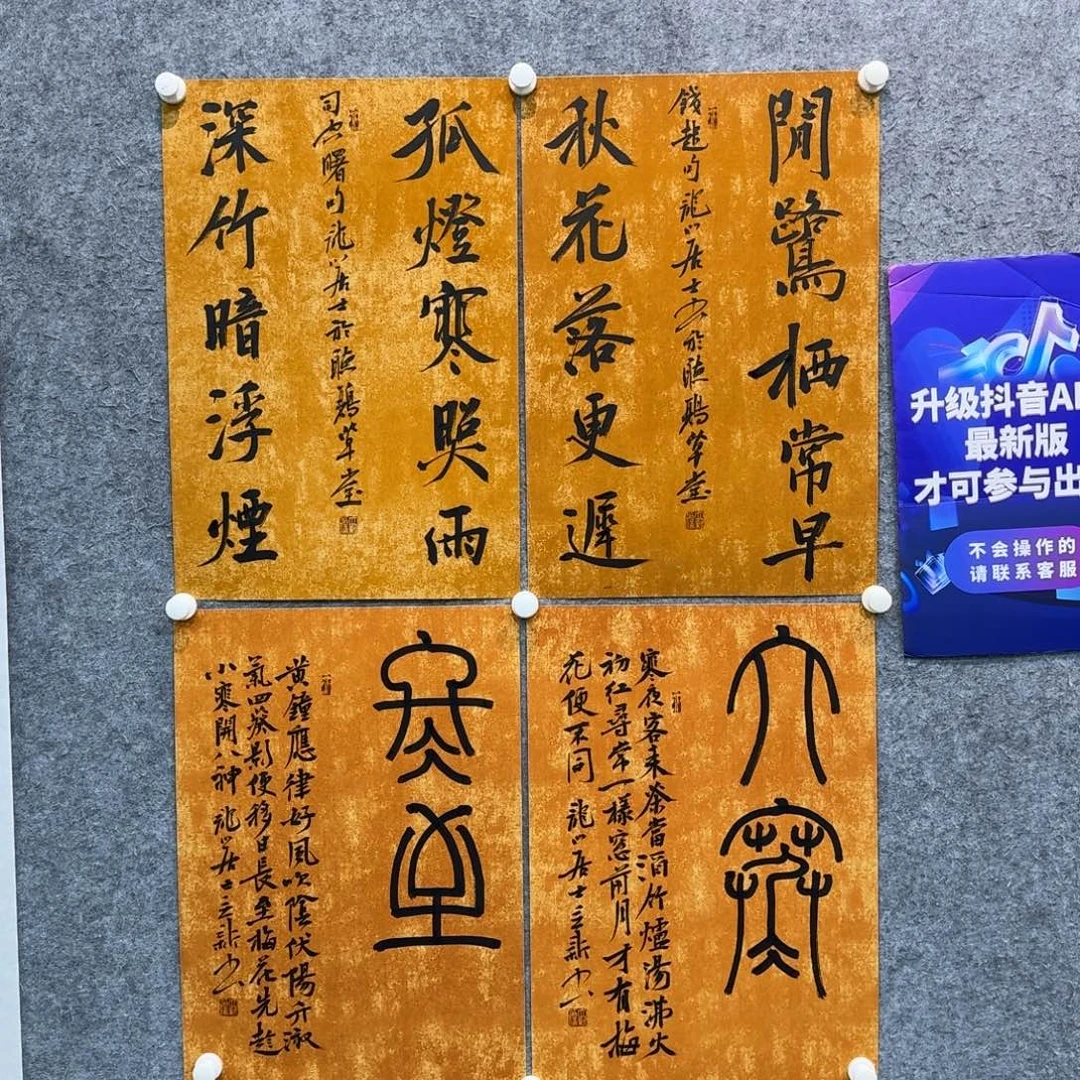 閒鷺栖常早
錢起句龍山居士书於草堂
秋花落更遲
孤燈寒照雨
司空曙句龍山居士於草堂
深竹暗浮煙
大寒
寒夜客来茶當酒竹爐湯沸火
初红尋常一樣窓前月才有梅
花便不同 龍山居士立新书
冬至
黄鐘應律好風吹陰伏陽升淑
氣回葵影便移日長至梅花先趁
小寒開八神 龍山居士立新书
升级抖音A
最新版
才可参与出
不会操作的
请联系客服